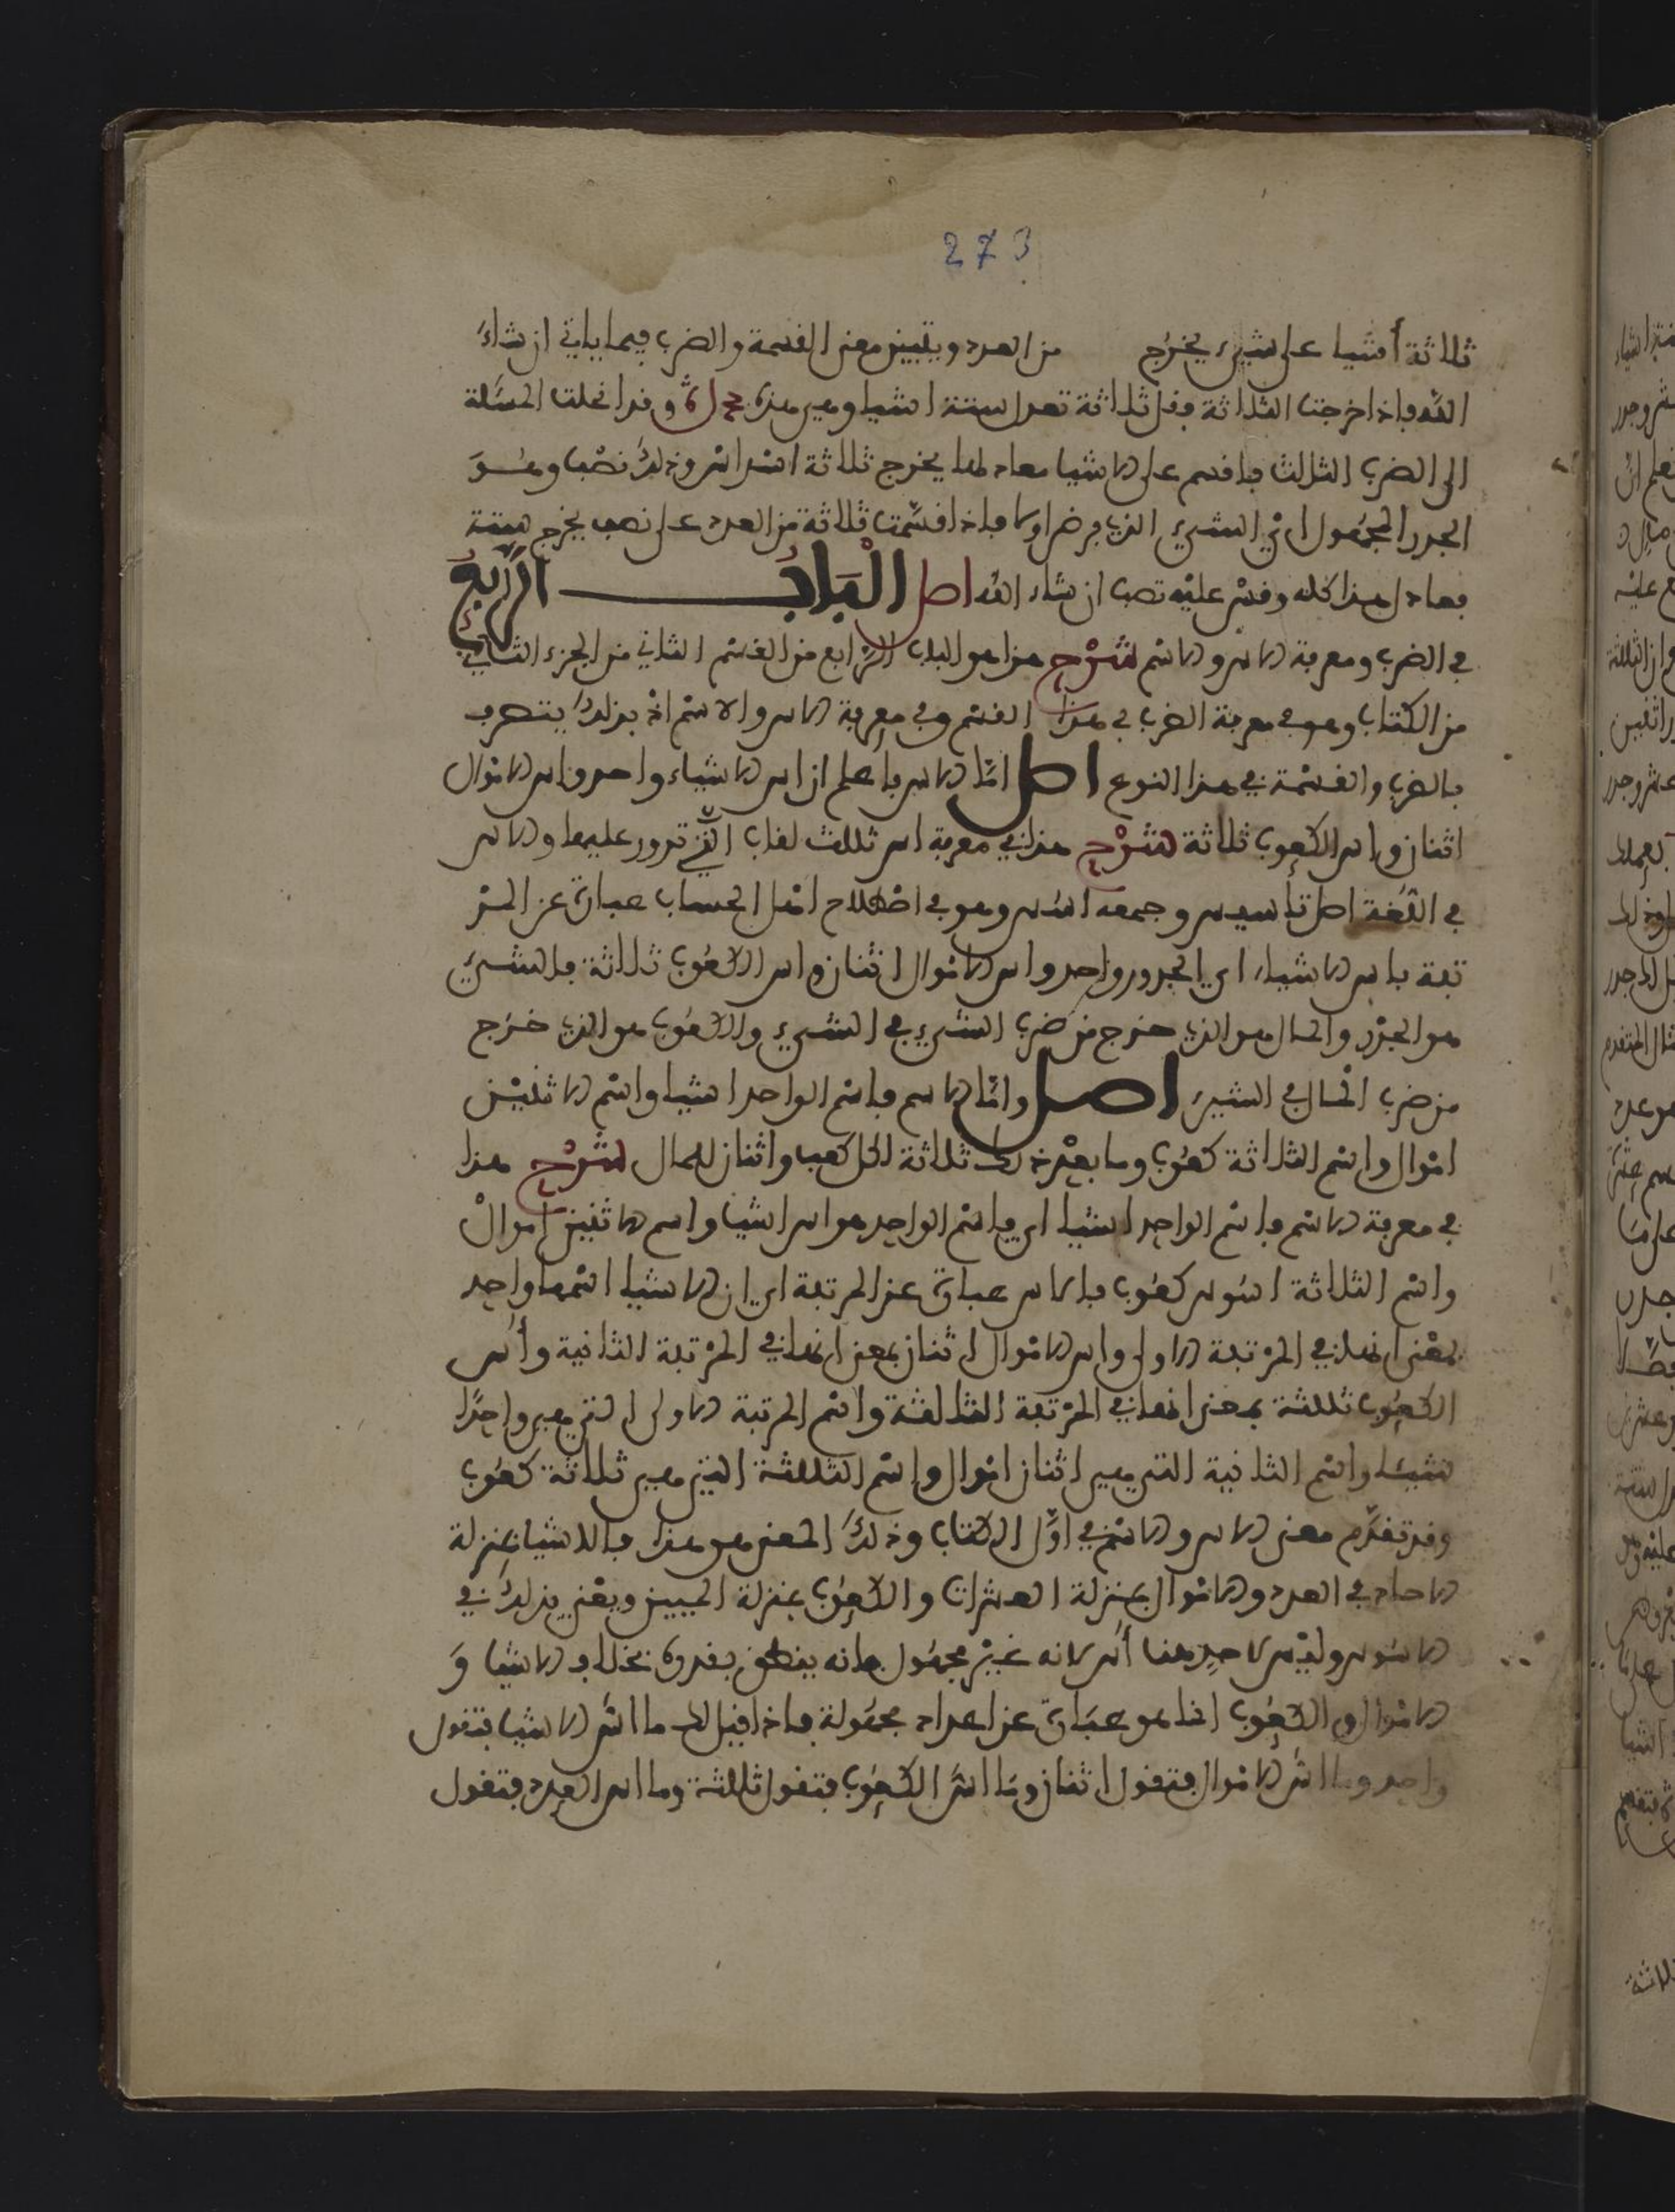 273
ثلاثة أشيا على شيىء يخرج من العدد ويتبين معنى القسمة والضرب فيما ياتي ان شاء
الله فاذا خرجت الثلاثة فقل ثلاثة تعدل ستة اشيا وهي هذه وقد انحلت المسئلة
الى الضرب الثالث فاقسم على الاشيا معادلها يخرج ثلاثة اسداس وذلك نصف وهو
الجدر المجهول اي الشيىء الذي فرض اولا فاذا قسمت ثلاثة من العدد على نصف يخرج ستة
فعادل هذا كله وقس عليه تصب ان شاء الله اصل الباب الرابع
في الضرب ومعرفة الاس والاسم شرح هذا هو الباب الرابع من القسم الثاني من الجزء الثاني
من الكتاب وهو في معرفة الضرب في هذا القسم وفي معرفة الاس والاسم اذ بذلك يتصرف
بالضرب والقسمة في هذا النوع اصل امّا الاس فاعلم ان اس الاشياء واحد واس الاموال
اثنان واس الكعوب ثلاثة شرح هذا في معرفة اس ثلاث القاب التي تدور عليها والاس
في اللغة اصل تأسيس وجمعه اسس وهو في اصطلاح اهل الحساب عبارة عن المر
تبة فاس الاشياء اي الجدور واحد واس الاموال اثنان واس الكعوب ثلاثة فالشيىء
هو الجدر والمال هو الذي خرج من ضرب الشيىء في الشيىء والكعوب هو الذي خرج
من ضرب المال في الشيىء اصل وامّا الاسم فاسم الواحد اشيا واسم الاثنين
اموال واسم الثلاثة كعوب وما بعد ذلك ثلاثة لكل كعب واثنان للمال شرح هذا
في معرفة الاسم فاسم الواحد اشيا اي فاسم الواحد هو اس اشيا واسم الاثنين اموال
واسم الثلاثة اسوس كعوب فالاس عبارة عن المرتبة اي ان الاشيا اسمها واحد
بمعنى انها في المرتبة الاولى واس الاموال اثنان بمعنى انها في المرتبة الثانية وأس
الكعوب ثلثة بمعنى انها في المرتبة الثالثة واسم المرتبة الاولى التي هي واحدا
شيئا واسم الثانية التي هي اثنان اموال واسم الثالثة التي هي ثلاثة كعوب
وقد تقدّم معنى الاس والاسم في اوّل الكتاب وذلك المعنى هو هذا فالاشيا بمنزلة
الاحاد في العدد والاموال بمنزلة العشرات والكعوب بمنزلة المييين ويعني بذلك في
الاسوس وليس لاحد هنا أس لانه غير مجهول فانه ينطق بقدره بخلاف الاشيا و
الاموال والكعوب انما هو عبارة عن اعداد مجهولة فاذا قيل لك ما اس الاشيا فتقول
واحد وما اس الاموال فتقول اثنان وما اس الكعوب فتقول ثلثة وما اس العدد فتقول